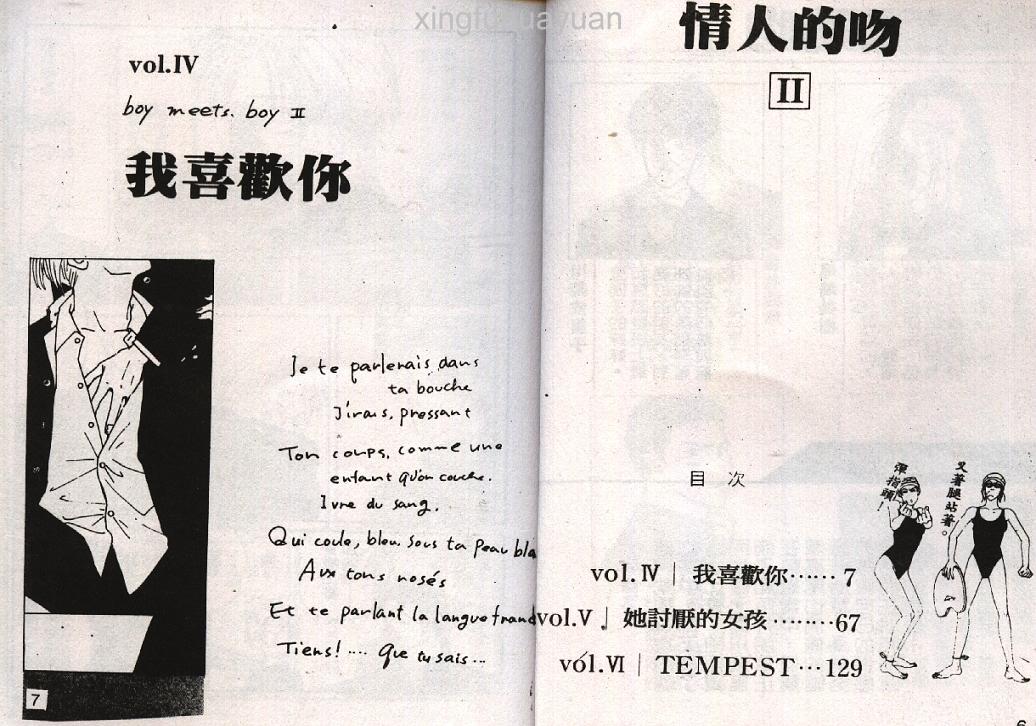 xingfuhuayuan
情人的吻
II
目次
彈指頭!
叉著腿站著。
vol.Ⅳ | 我喜歡你······ 7
vol.Ⅴ | 她討厭的女孩········67
vol.Ⅵ | TEMPEST···129
6
vol.Ⅳ
boy meets. boy II
我喜歡你
Je te parlerais dans
ta bouche
J'irais, pressant
Ton corps, comme une
enfant qu'on couche.
Ivre du sang.
Qui coule, bleu. sous ta peau bla
Aux tons rosés
Et te parlant la langue fran
Tiens! .... que tu sais...
7